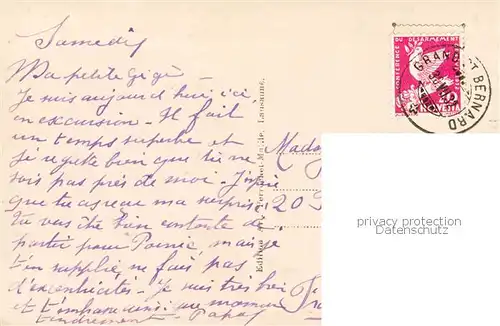 Samedi
Ma petite Gigi –
Je suis aujourd'hui, ici,
en excursion. Il fait
un temps superbe et
je regrette bien que tu ne
sois pas près de moi. J'espère
que tu as reçu ma surprise
Tu vas être bien contente de
partir pour mais je
t'en supplie, ne fais pas
d'excentricités. Je suis très
et t'embrasse au
tendrement. Papa
Edition Art. Perrochet-Matile, Lausanne.
Mada
20
CONFERENCE DU DESARMEMENT
HELVETIA
GRAND
BERNARD
privacy protection
Datenschutz